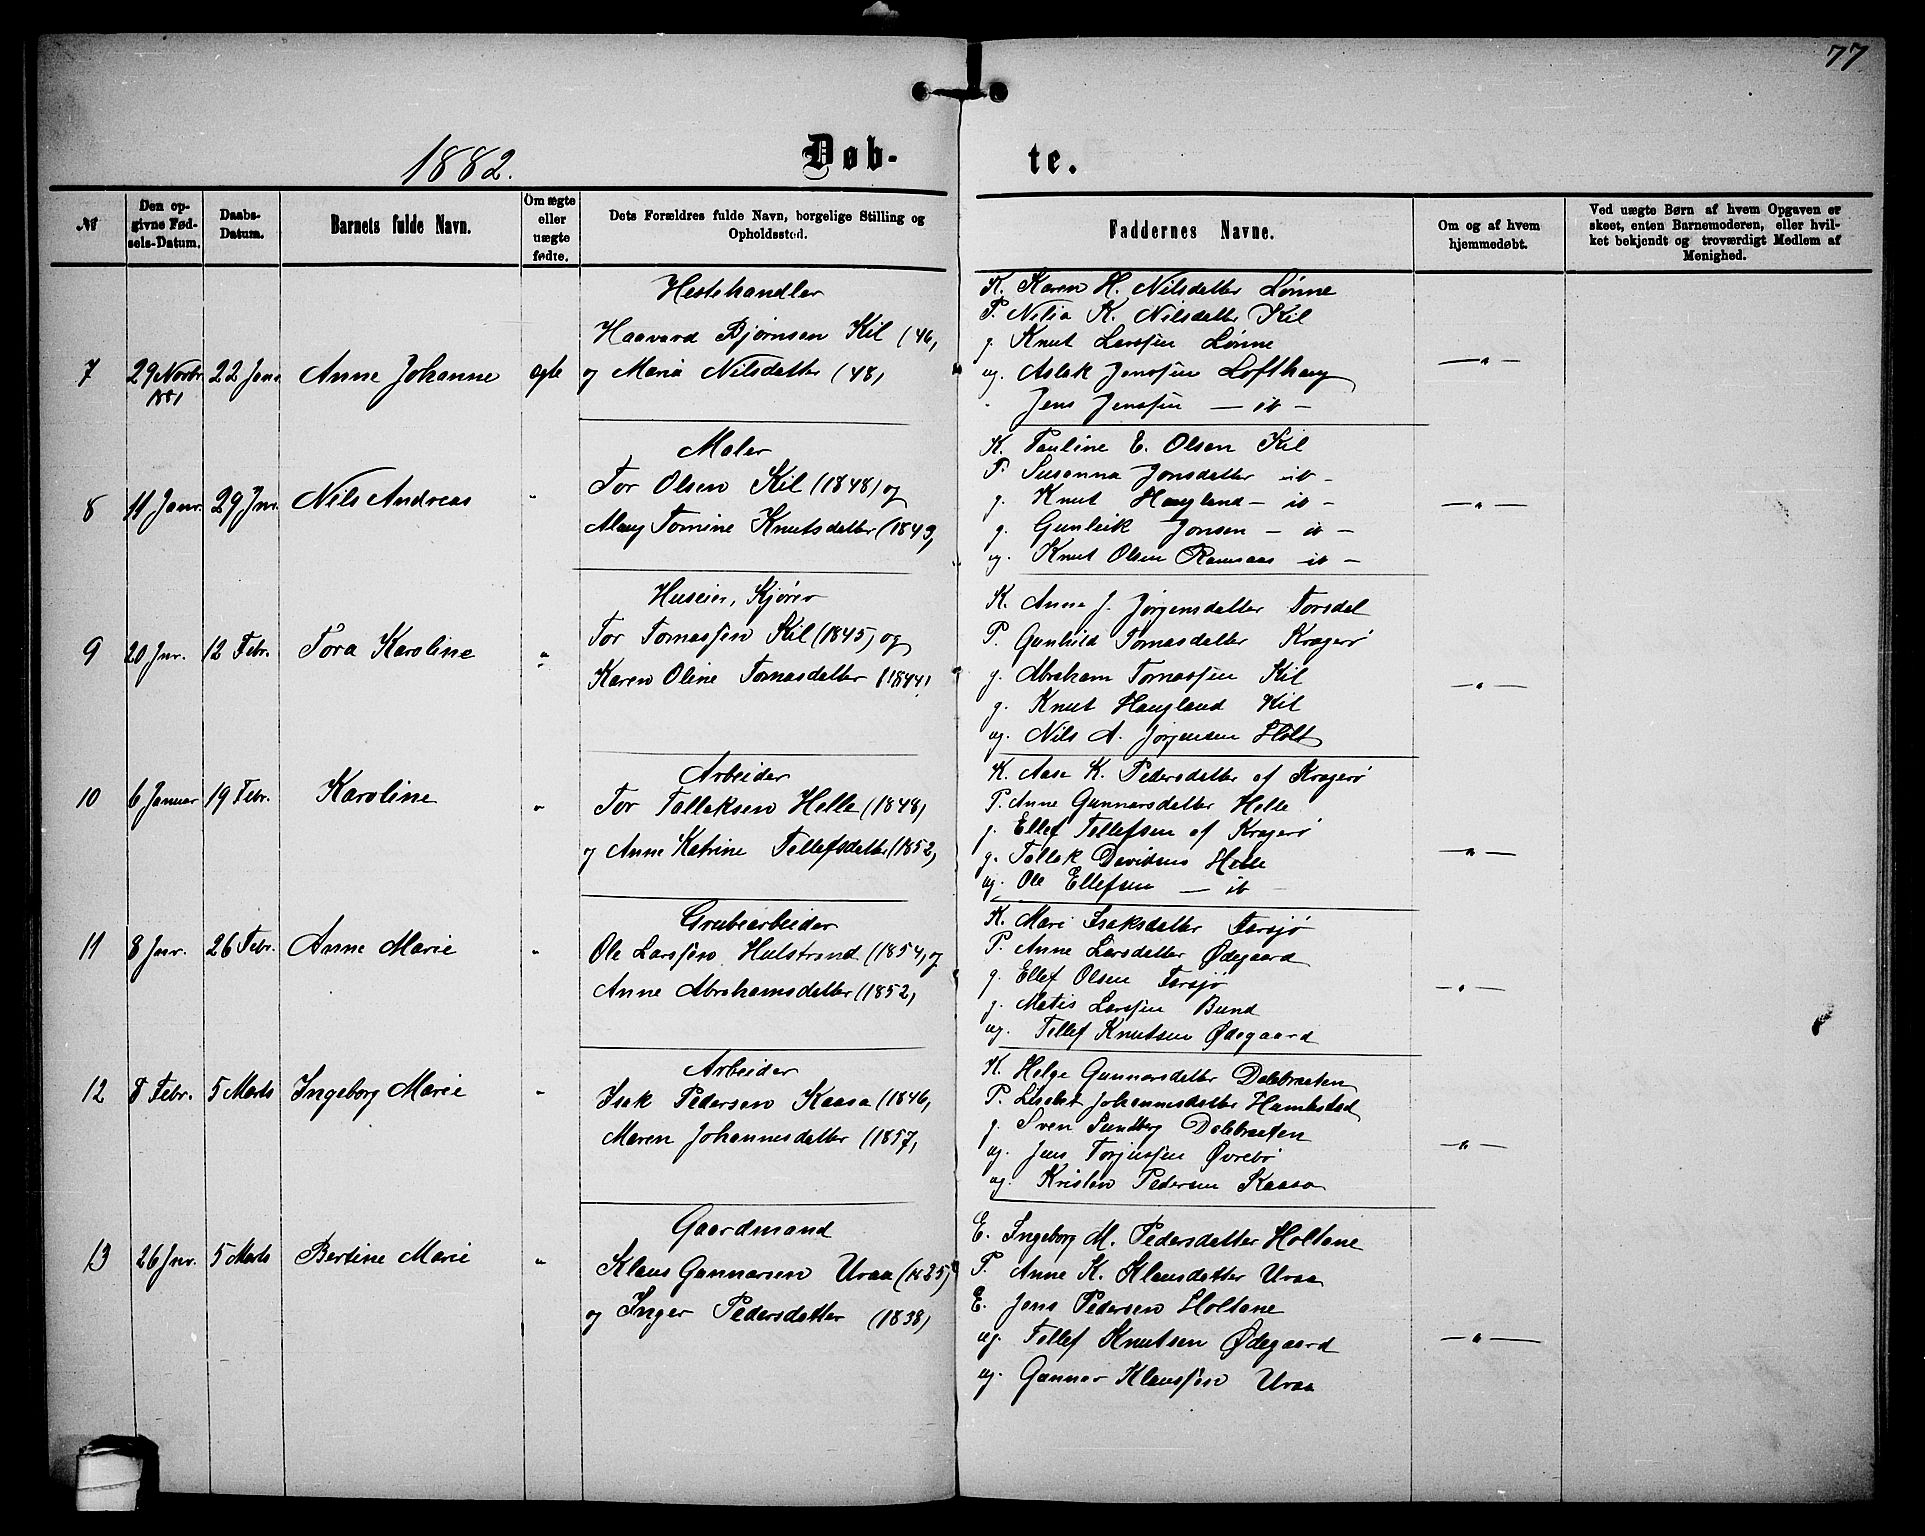 77
1882.
Døb-
te.
№
Den opgivne Fødsels-Datum.
Daabs-Datum.
Barnets fulde Navn.
Om ægte eller uægte fødte.
Dets Forældres fulde Navn, borgelige Stilling og Opholdssted.
Faddernes Navne.
Om og af hvem hjemmedøbt.
Ved uægte Børn af hvem Opgaven er skeet, enten Barnemoderen, eller hvilket bekjendt og troværdigt Medlem af Menighed.
7 29 Novbr 1881 22 Janr Anne Johanne ægte
Hestehandler
Haavard Bjørnsen Kil (46,
og Maria Nilsdatter (48,
K. Karen H. Nilsdatter Lønne
P. Nilia K. Nilsdatter Kil
g. Knut Larssen Lønne
ug. Aslak Jenssen Lofthaug
Jens Jenssen — ib —
— " —
8 11 Janr. 29 Jnr. Nils Andreas "
Maler
Tor Olsen Kil (1848) og
Mary Tomine Knutsdatter (1849,
K. Pauline E. Olsen Kil
P. Susanna Jonsdatter — ib —
g. Knut Haugland — ib —
g. Gunleik Jonsen — ib —
ug. Knut Olsen Ramsaas ib —
— " —
9 20 Jnr. 12 Febr. Tora Karoline "
Huseier, Kjører
Tor Tomassen Kil (1845) og
Karen Oline Tomasdatter (1844)
K. Anne J. Jørgensdatter Torsdal
P. Gunhild Tomasdatter Kragerø
g. Abraham Tomassen Kil
g. Knut Haugland Kil
ug. Nils A. Jørgensen Holt
— " —
10 6 Januar 19 Febr. Karoline "
Arbeider
Tor Tollaksen Helle (1848)
og Anne Katrine Tellefsdatter (1852,
K. Aase K. Pedersdatter af Kragerø
P. Anne Gunnarsdatter Helle
g. Ellef Tellefsen af Kragerø
g. Tollak Davidsen Helle
ug. Ole Ellefsen — ib —
— " —
11 8 Jnr. 26 Febr. Anne Marie "
Grubearbeider
Ole Larssen Hulstrand (1854, og
Anne Abrahamsdatter (1852,
K. Mari Isaksdatter Farsjø
P. Anne Larsdatter Ødegaard
g. Ellef Olsen Farsjø
g. Matis Larssen Bund
ug. Tellef Knutsen Ødegaard
— " —
12 8 Febr. 5 Marts Ingeborg Marie "
Arbeider
Isak Pedersen Kaasa (1846,
Maren Johannesdatter (1857,
K. Helge Gunnarsdatter Dalebraaten
P. Lisabet Johannesdatter Humlestad
g. Sven Sundberg Dalebraaten
ug. Jens Torjussen Øvrebø
ug. Kristen Pedersen Kaasa
— " —
13 26 Jnr. 5 Marts Bertine Marie "
Gaardmand
Klaus Gunnarsen Uraa (1825)
og Inger Pedersdatter (1838)
E. Ingeborg M. Pedersdatter Holtane
P. Anne K. Klausdatter Uraa
E. Jens Pedersen Holtane
ug. Tellef Knutsen Ødegaard
ug. Gunnar Klaussen Uraa
— " —